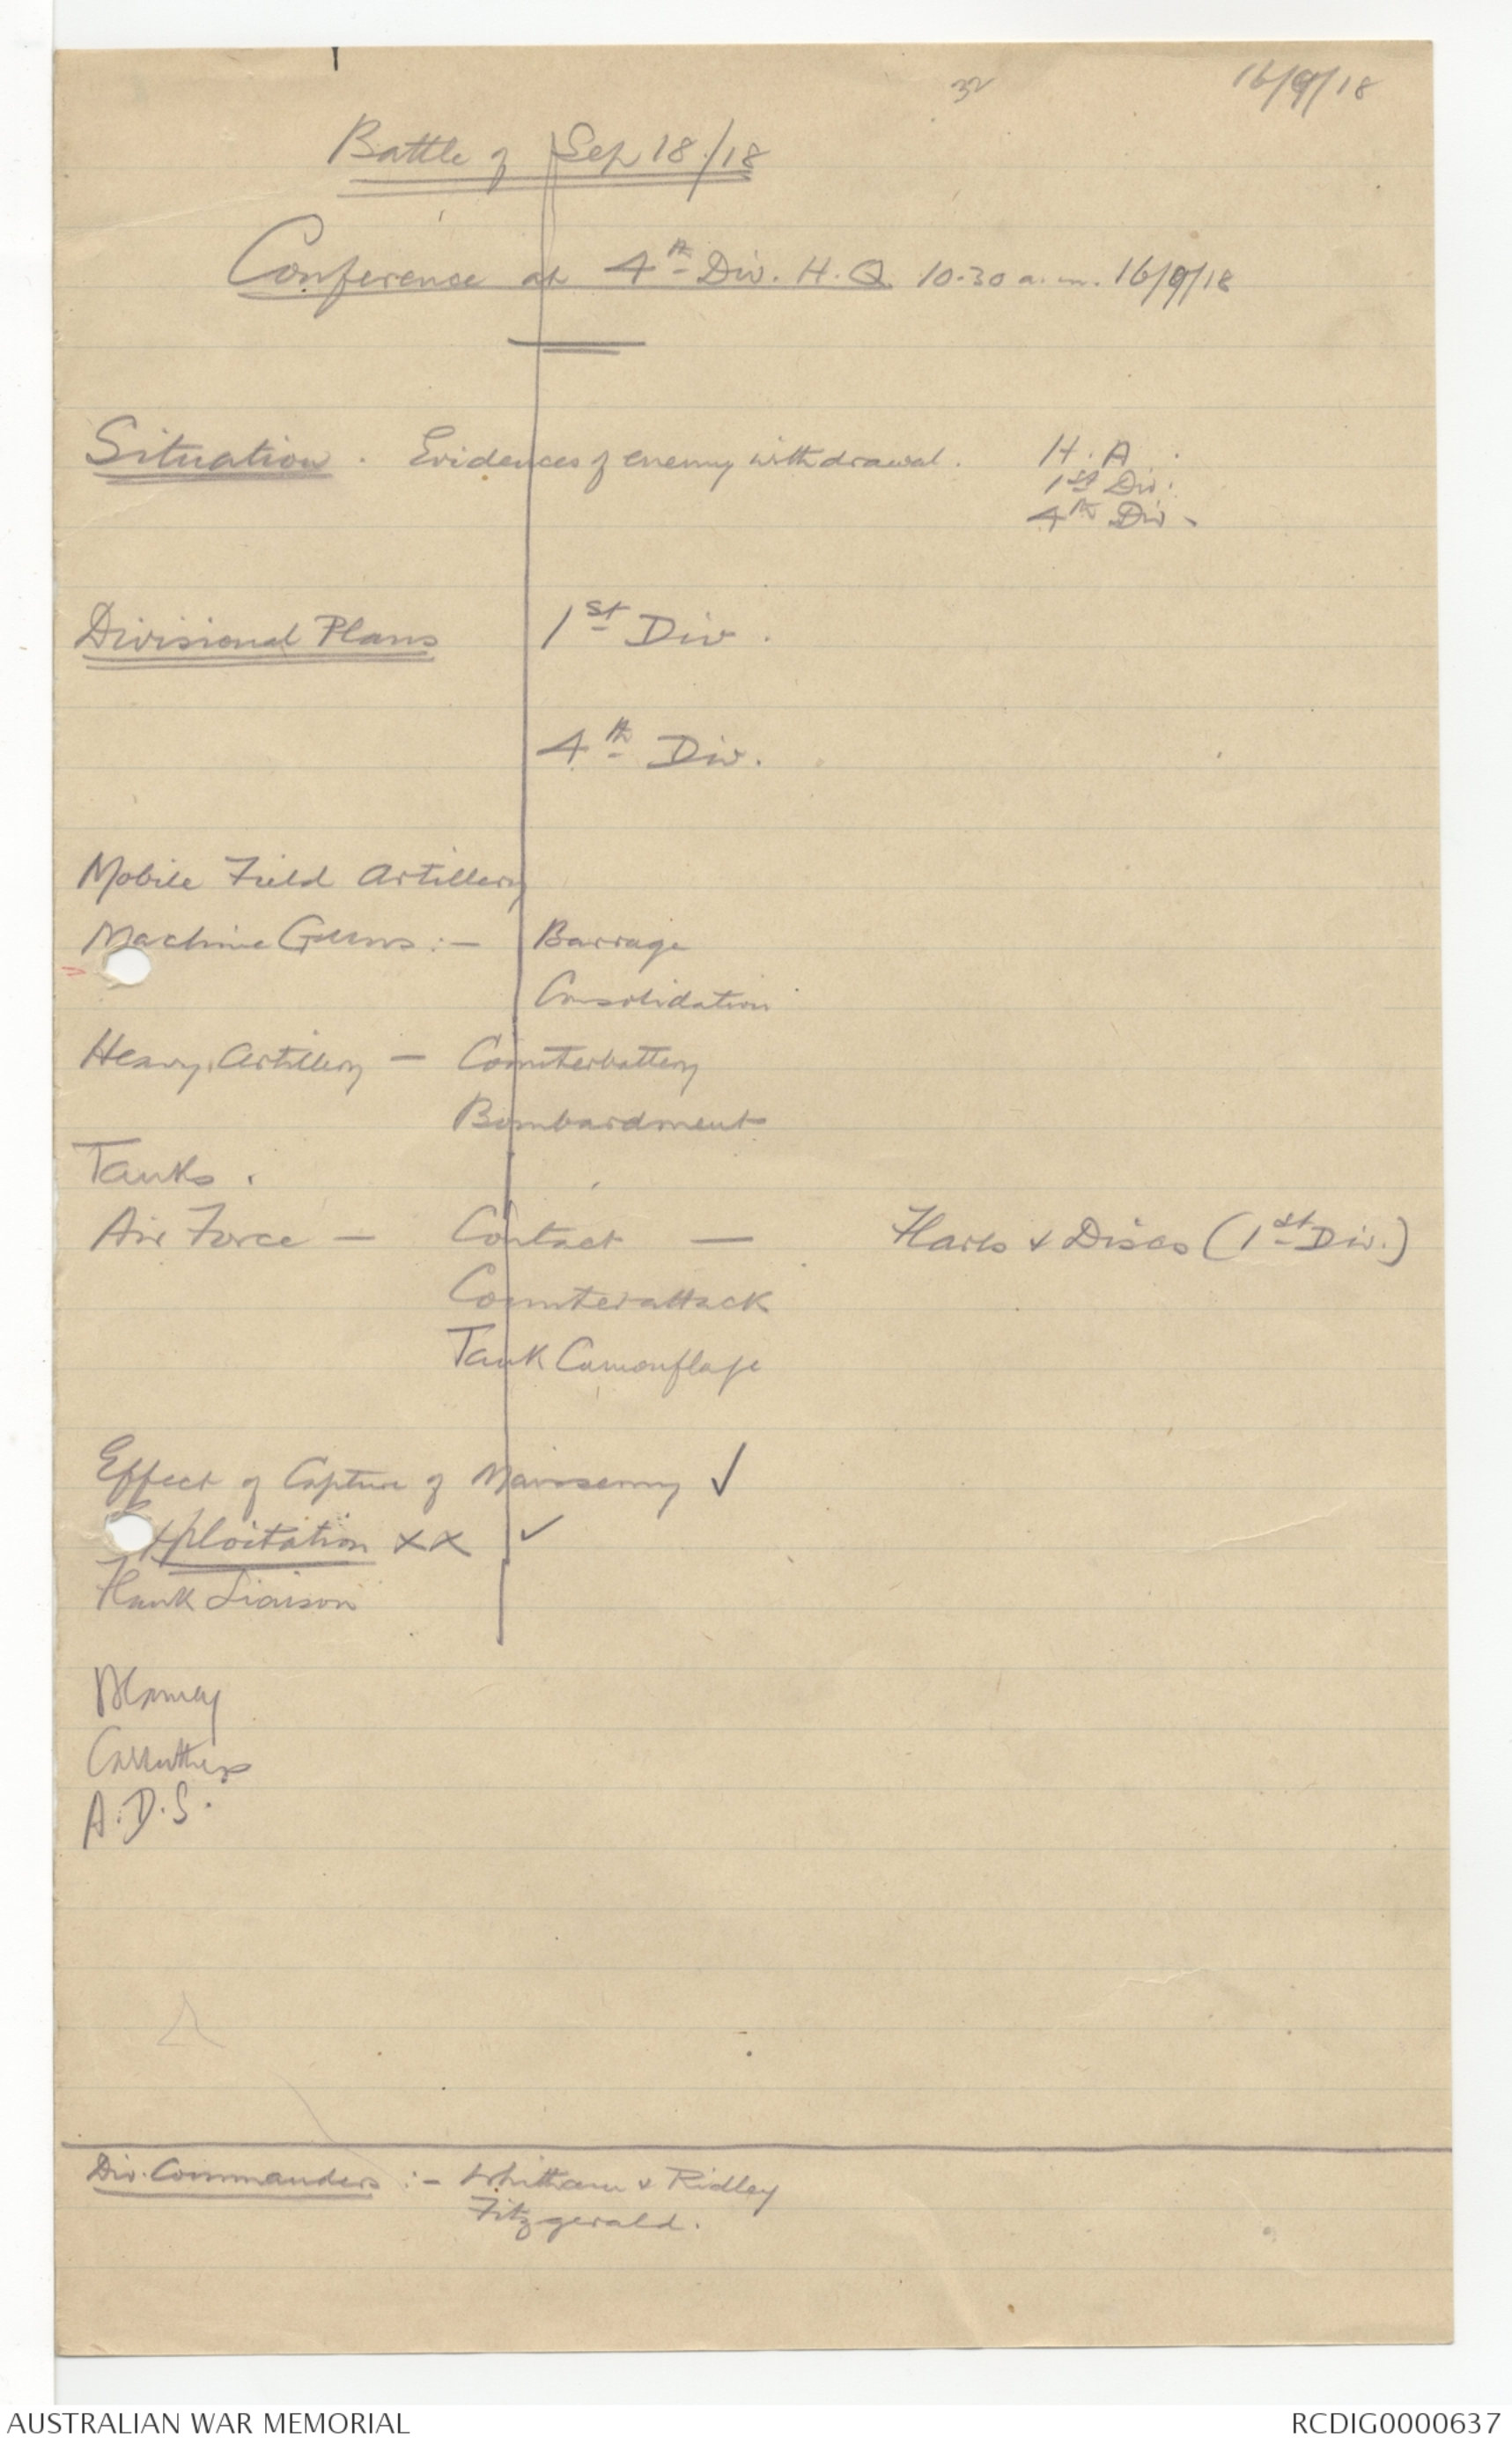 32
16/9/18
Battle of Sep 18/18
Conference at 4th Div. H.Q. 10.30 a.m. 16/9/18
Situation. Evidences of enemy withdrawal. H.A.
1st Div.
4th Div.
Divisional Plans 1st Div.
4th Div.
Mobile Field Artillery
Machine Guns :- Barrage
Consolidation
Heavy Artillery - Counterbattery
Bombardment
Tanks.
Air Force - Contact - & Discs (1st Div.)
Counterattack
Tank Camouflage
Effect of Capture of ✓
Exploitation xx ✓
Flank Liaison
Blamey
Carruthers
A.D.S.
Div. Commanders :- Whitham & Ridley
Fitzgerald.
AUSTRALIAN WAR MEMORIAL
RCDIG0000637